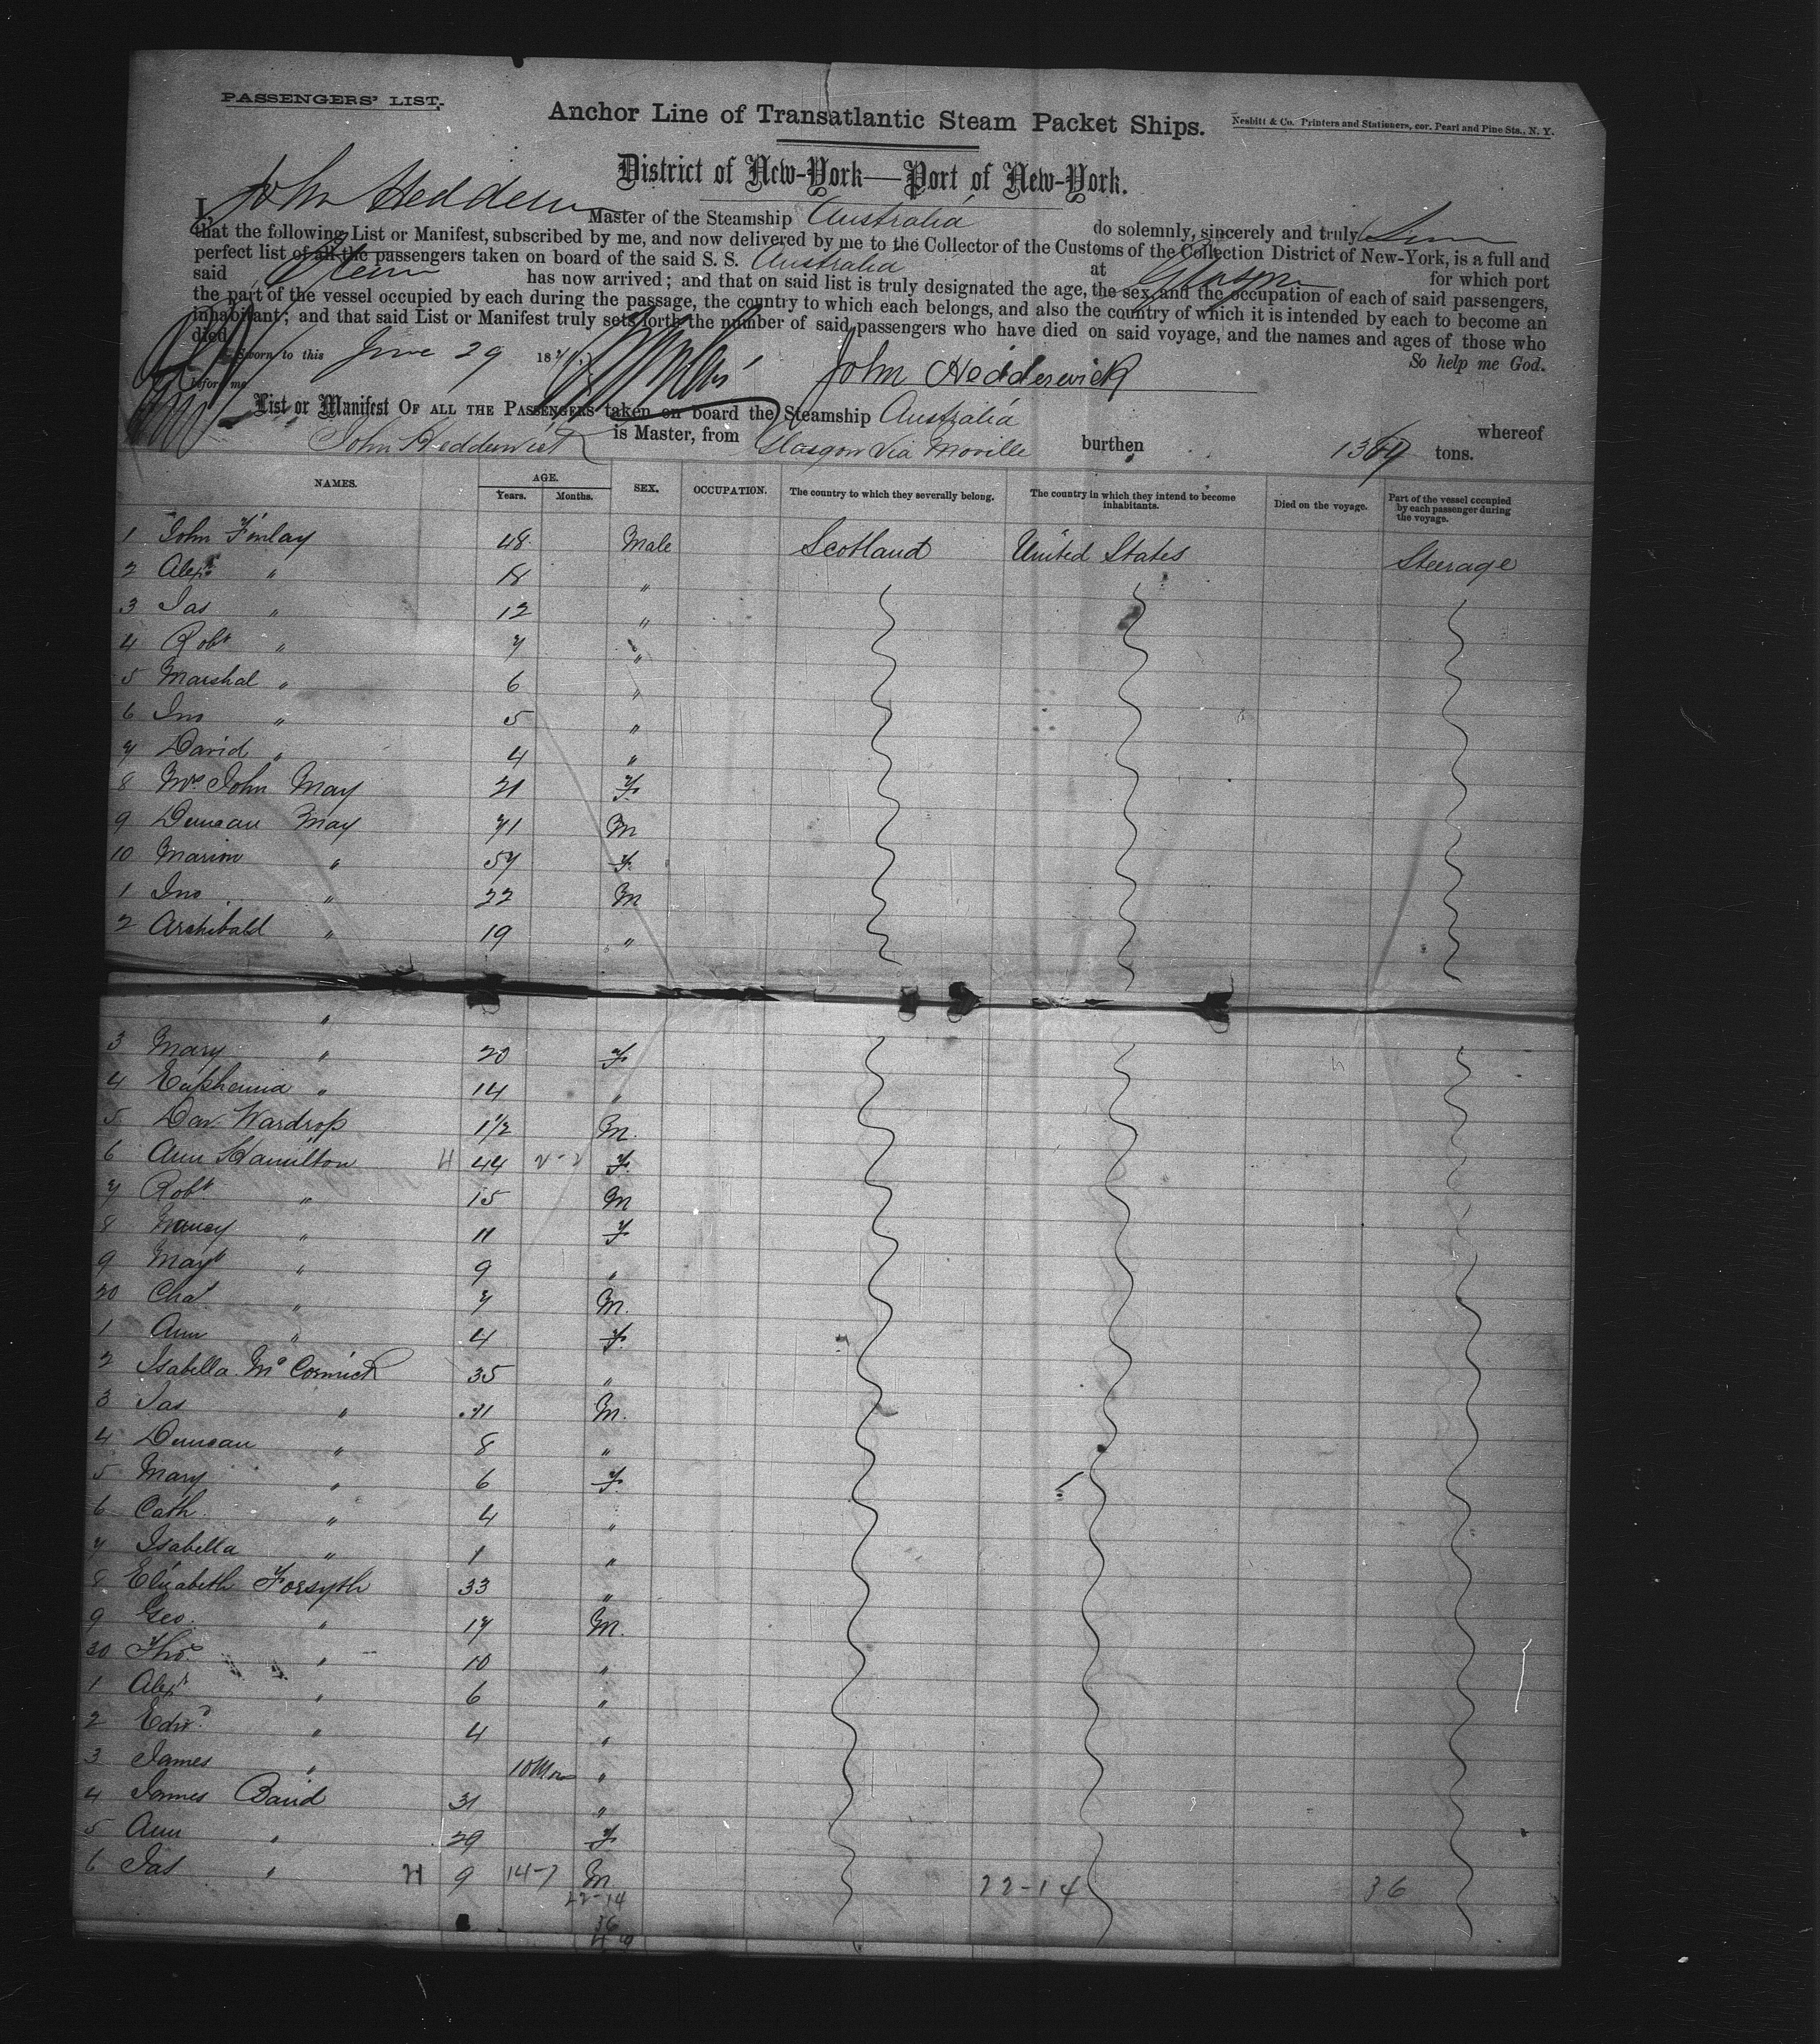 PASSENGERS' LIST.
Anchor Line of Transatlantic Steam Packet Ships.
Nesbitt & Co. Printers and Stationers, cor. Pearl and Pine Sts., N. Y.
District of New-York—Port of New-York.
I, John Hedderw Master of the Steamship Australia do solemnly, sincerely and truly
that the following List or Manifest, subscribed by me, and now delivered by me to the Collector of the Customs of the Collection District of New-York, is a full and
perfect list of all the passengers taken on board of the said S. S. Australia at Glasgow for which port
said has now arrived; and that on said list is truly designated the age, the sex, and the occupation of each of said passengers,
the part of the vessel occupied by each during the passage, the country to which each belongs, and also the country of which it is intended by each to become an
inhabitant; and that said List or Manifest truly sets forth the number of said passengers who have died on said voyage, and the names and ages of those who
died.
So help me God.
Sworn to this June 29 187
John Hedderwick
before me
List or Manifest OF ALL THE PASSENGERS taken on board the Steamship Australia whereof
John Hedderwick is Master, from Glasgow Via Moville burthen 1364 tons.
NAMES. AGE. Years. Months. SEX. OCCUPATION. The country to which they severally belong. The country in which they intend to become inhabitants. Died on the voyage. Part of the vessel occupied by each passenger during the voyage.
1 John Finlay 48 Male Scotland United States Steerage
2 Alexr " 18 "
3 Jas " 12 "
4 Robt " 7 "
5 Marshal " 6 "
6 Jno " 5 "
7 David " 4 "
8 Mrs John May 21 F.
9 Duncan May 71 M
10 Marion " 57 F.
1 Jno " 22 M
2 Archibald " 19 "
"
3 Mary " 20 F
4 Euphemia " 14 "
5 Dav. Wardrop 1½ M.
6 Ann Hamilton H 44 2-2 F.
7 Robt " 15 M
8 Nancy " 11 F
9 Mayt " 9 "
20 Chas " 7 M.
1 Ann " 4 F.
2 Isabella McCormick 35 "
3 Jas " 11 M.
4 Duncan " 8 "
5 Mary " 6 F
6 Cath " 4 "
7 Isabella " 1 "
8 Elizabeth Forsyth 33 "
9 Geo. " 17 M.
30 Thos " 10 "
1 Alexr " 6 "
2 Edwd " 4 "
3 James " 10 Mos "
4 James Baird 31 "
5 Ann " 29 F
6 Jas " H 9 14-7 M 22-14 36
22-14
36